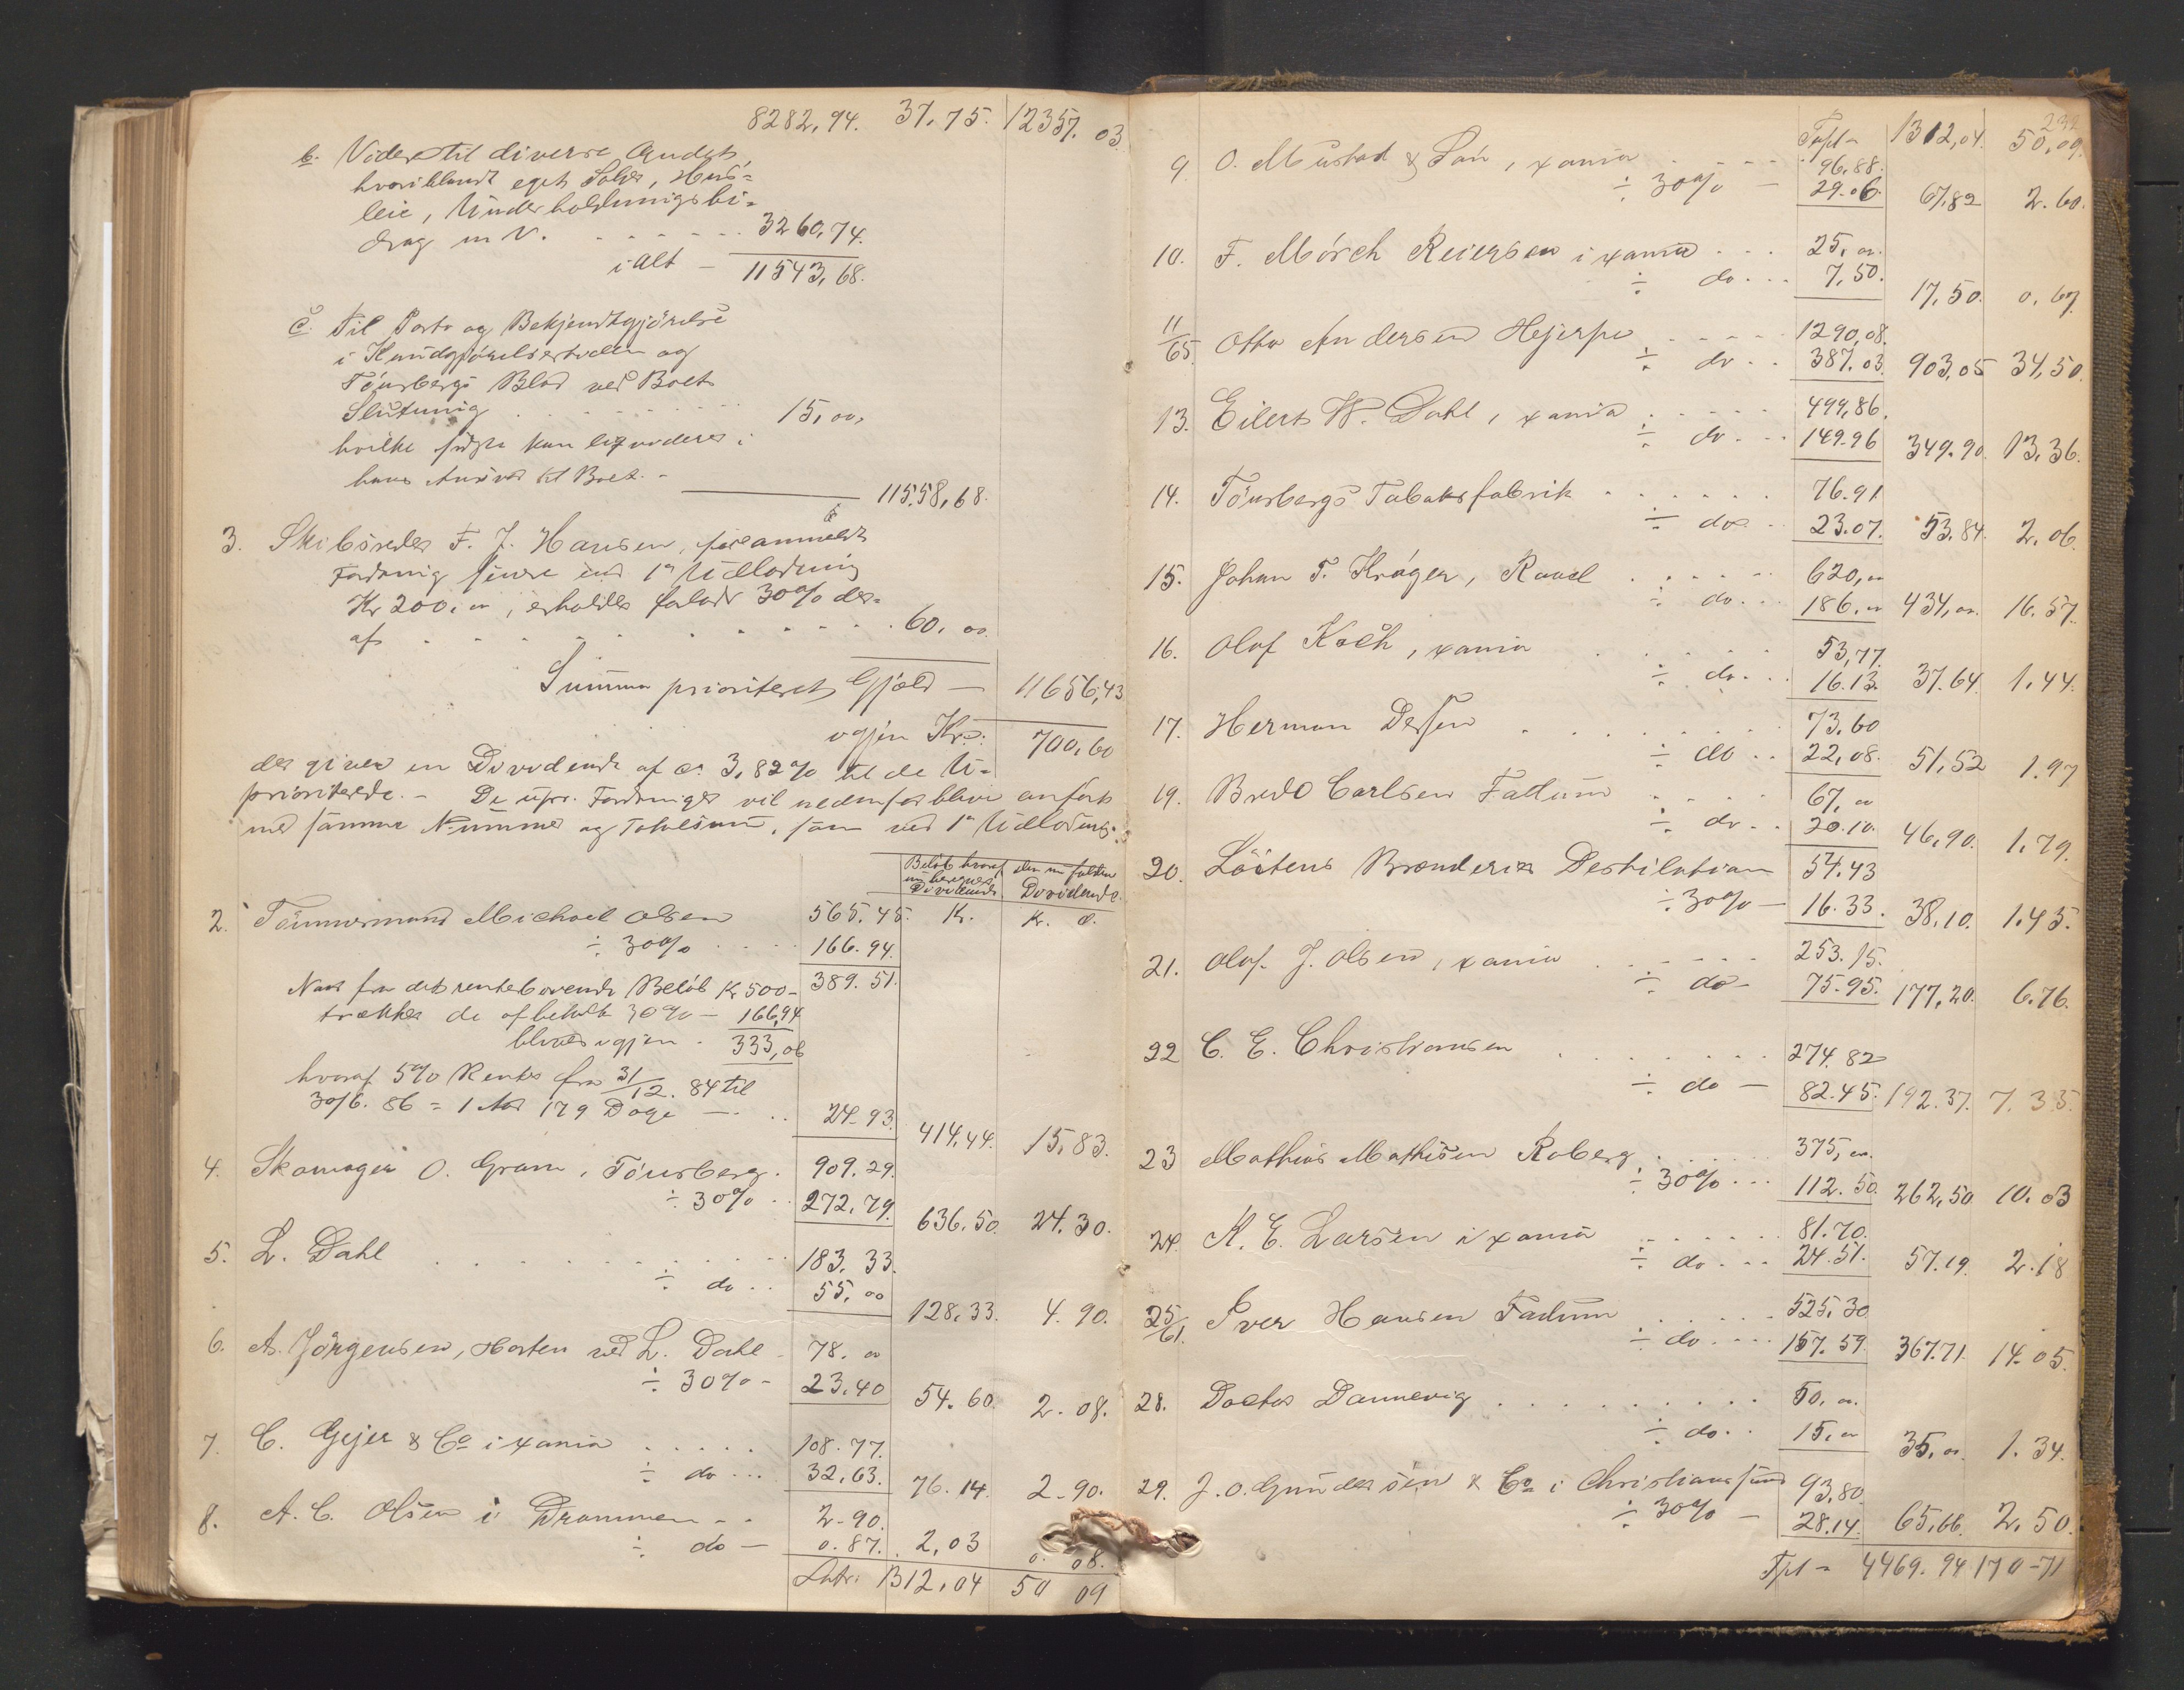 8282,94. 37,75. 12357. 03
b. Videre til diverse Andet,
hvoriblandt egets Salær, Hus=
leie, Underholdningsbi=
drag m V. 3260,74.
i Alt - 11543,68.
c. Til Porto og Bekjendtgjörelse
i Kundgjörelsestidende og
Tönsbergs Blad ved Boets
Slutning 15,00,
hvilke
hans Ansvar til Boet. -
11558,68.
3. Skibsreder F. J. Hansen, for anmeldt
Fordring senere end 1ste Udlodning
Kr 200,00, erholder forlods 30% der=
af 60,00.
Summa prioriteret Gjæld - 11656,43
igjen Kr: 700,60
der giver en Dividende af ca 3,82% til de U=
prioriterede. - De upr. Fordringer vil nedenfor blive anført
med samme Nummer og Totalsum, som ved 1ste Udlodning.
Beløb hvoraf nu beregnes Dividende den nu faldne Dividende.
2. Tömmermand Michael Olsen 565.45. Kr. Kr. ø.
÷ 30% 166.94.
389.51.
Naar fra det rentebærende Beløb Kr 500-
trækkes de afbetalte 30% - 166,94
blives igjen - 333,06
hvoraf 5% Renter fra 31/12. 84 til
30/6. 86 = 1 Aar 179 Dage - 24-93. 414,44. 15,83.
4. Skomager O. Gram, Tönsberg. 909.29.
÷ 30% 272,79. 636.50. 24.30.
5. L. Dahl 183,33.
÷ do 55,00 128,33. 4.90.
6. A. Jörgensen, Horten ved L. Dahl 78.00
÷ 30% - 23,40 54.60. 2.08.
7. C. Gejer & Co i Xania 108.77.
÷ do 32,63. 76.14. 2-90.
8. A. C. Olsen i Drammen 2-90.
÷ do - 0.87. 2,03 0.08.
Latr: 1312,04 50 09
232
Tspt - 1312,04. 50,09.
9 O. Mustad & Sön, Xania 96,88.
÷ 30% - 29.06. 67,82 2.60.
10. F. Mörch Reiersen i Xania 25,00.
÷ do 7,50. 17,50. 0,67
11/65. Otto Andersen Hejerpe 1290,08.
÷ do 387.03. 903,05 34,50.
13. Eilert W. Dahl, Xania 499,86.
÷ do 149.96 349.90. 13,36.
14. Tönsbergs Tabaksfabrik 76.91
÷ do 23.07. 53,84. 2,06.
15. Johan T. Kröger, Ravel 620,00
÷ do 186,00 434,00. 16.57.
16. Olaf Koch, Xania 53,77.
÷ do 16.13. 37.64. 1,44.
17. Herman 73,60
÷ do 22,08. 51,52 1.97
19. Bredo Carlsen Fadum 67,00
÷ do 20.10. 46,90. 1,79.
20. Löitens Brænderies Destilation 54.43
÷ 30% - 16.33. 38,10. 1.45.
21. Olaf J. Olsen, Xania 253.15.
÷ do - 75.95. 177,20. 6.76.
22 C. E. Christiansen 274.82
÷ do - 82.45. 192.37. 7.35.
23 Mathias Mathisen Roberg 375,00.
÷ 30% 112.50. 262,50 10.03
24. K. E. Larsen i Xania 81.70.
÷ do 24.51. 57.19. 2.18
25/61. Iver Hansen Fadum 525,30
÷ do 157.59. 367.71. 14.05.
28. Doctor Dannevig 50,00.
÷ do 15,00 35,00. 1.34.
29. J. O. Gundersen & Co i Christianssund 93,80.
÷ 30% - 28.14. 65,66. 2,50.
Tspt - 4469.94 170-71